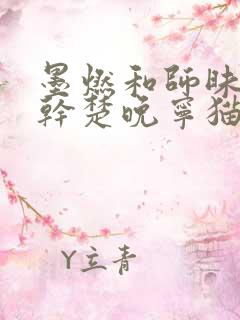 墨燃和師昧
幹楚晚寧猫
Y立青